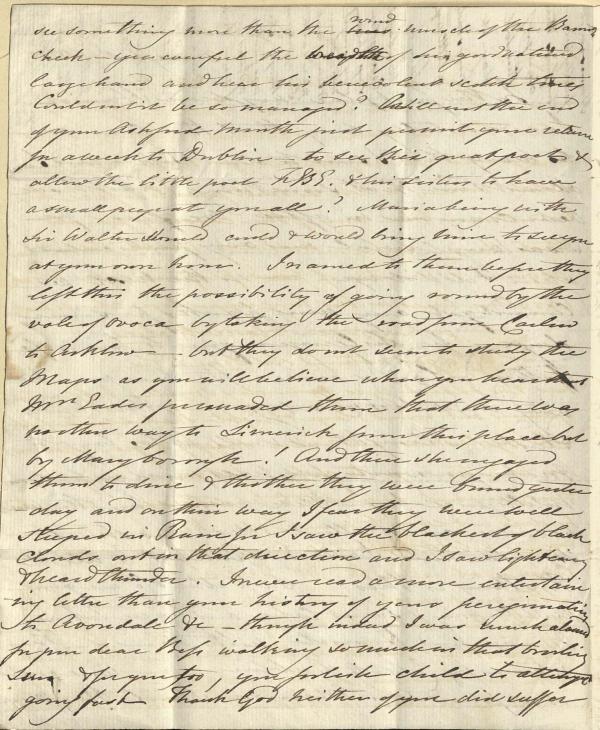 see something more than the round muscle of the Baronets
cheek – you can feel the breadth of his good natured
large hand and hear his benevolent scotch tones
Could not it be so managed? Will not the end
of your Ashford month just permit your return
for a week to Dublin – to see this great poet &
allow the little poet & his sisters to have
a small peep at you all? Maria being with
Sir Walter should could & would bring him to see you
at your own home. I named to them before they
left this the possibility of going round by the
vale of Ovoca by taking the road from Carlow
to Arklow – but they do not seem to study the
Maps as you will believe when you hear that
Mrs Eades persuaded them that there was
no other way to Limerick from this place but
by Maryborough! And there she engaged
them to dine & thither they were bound yester
day and on their way I fear they were well
steeped in Rain for I saw the blackest of black
clouds out in that direction and I saw lightening
& heard thunder. I never read a more entertain
ing letter than your history of your peregrinations
to Avondale &c – though indeed I was much alarmed
for your dear Bess walking so much in that broiling
sun & for you too, you foolish child to attempt
going fast Thank God neither of you did suffer